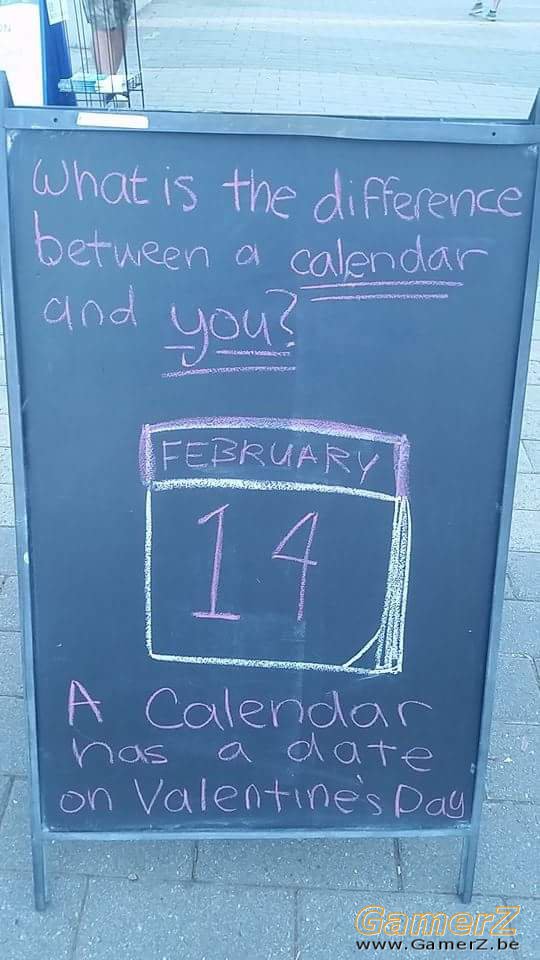 What is the difference
between a calendar
and you?
FEBRUARY
14
A Calendar
has a date
on Valentine's Day
GamerZ
www.GamerZ.be